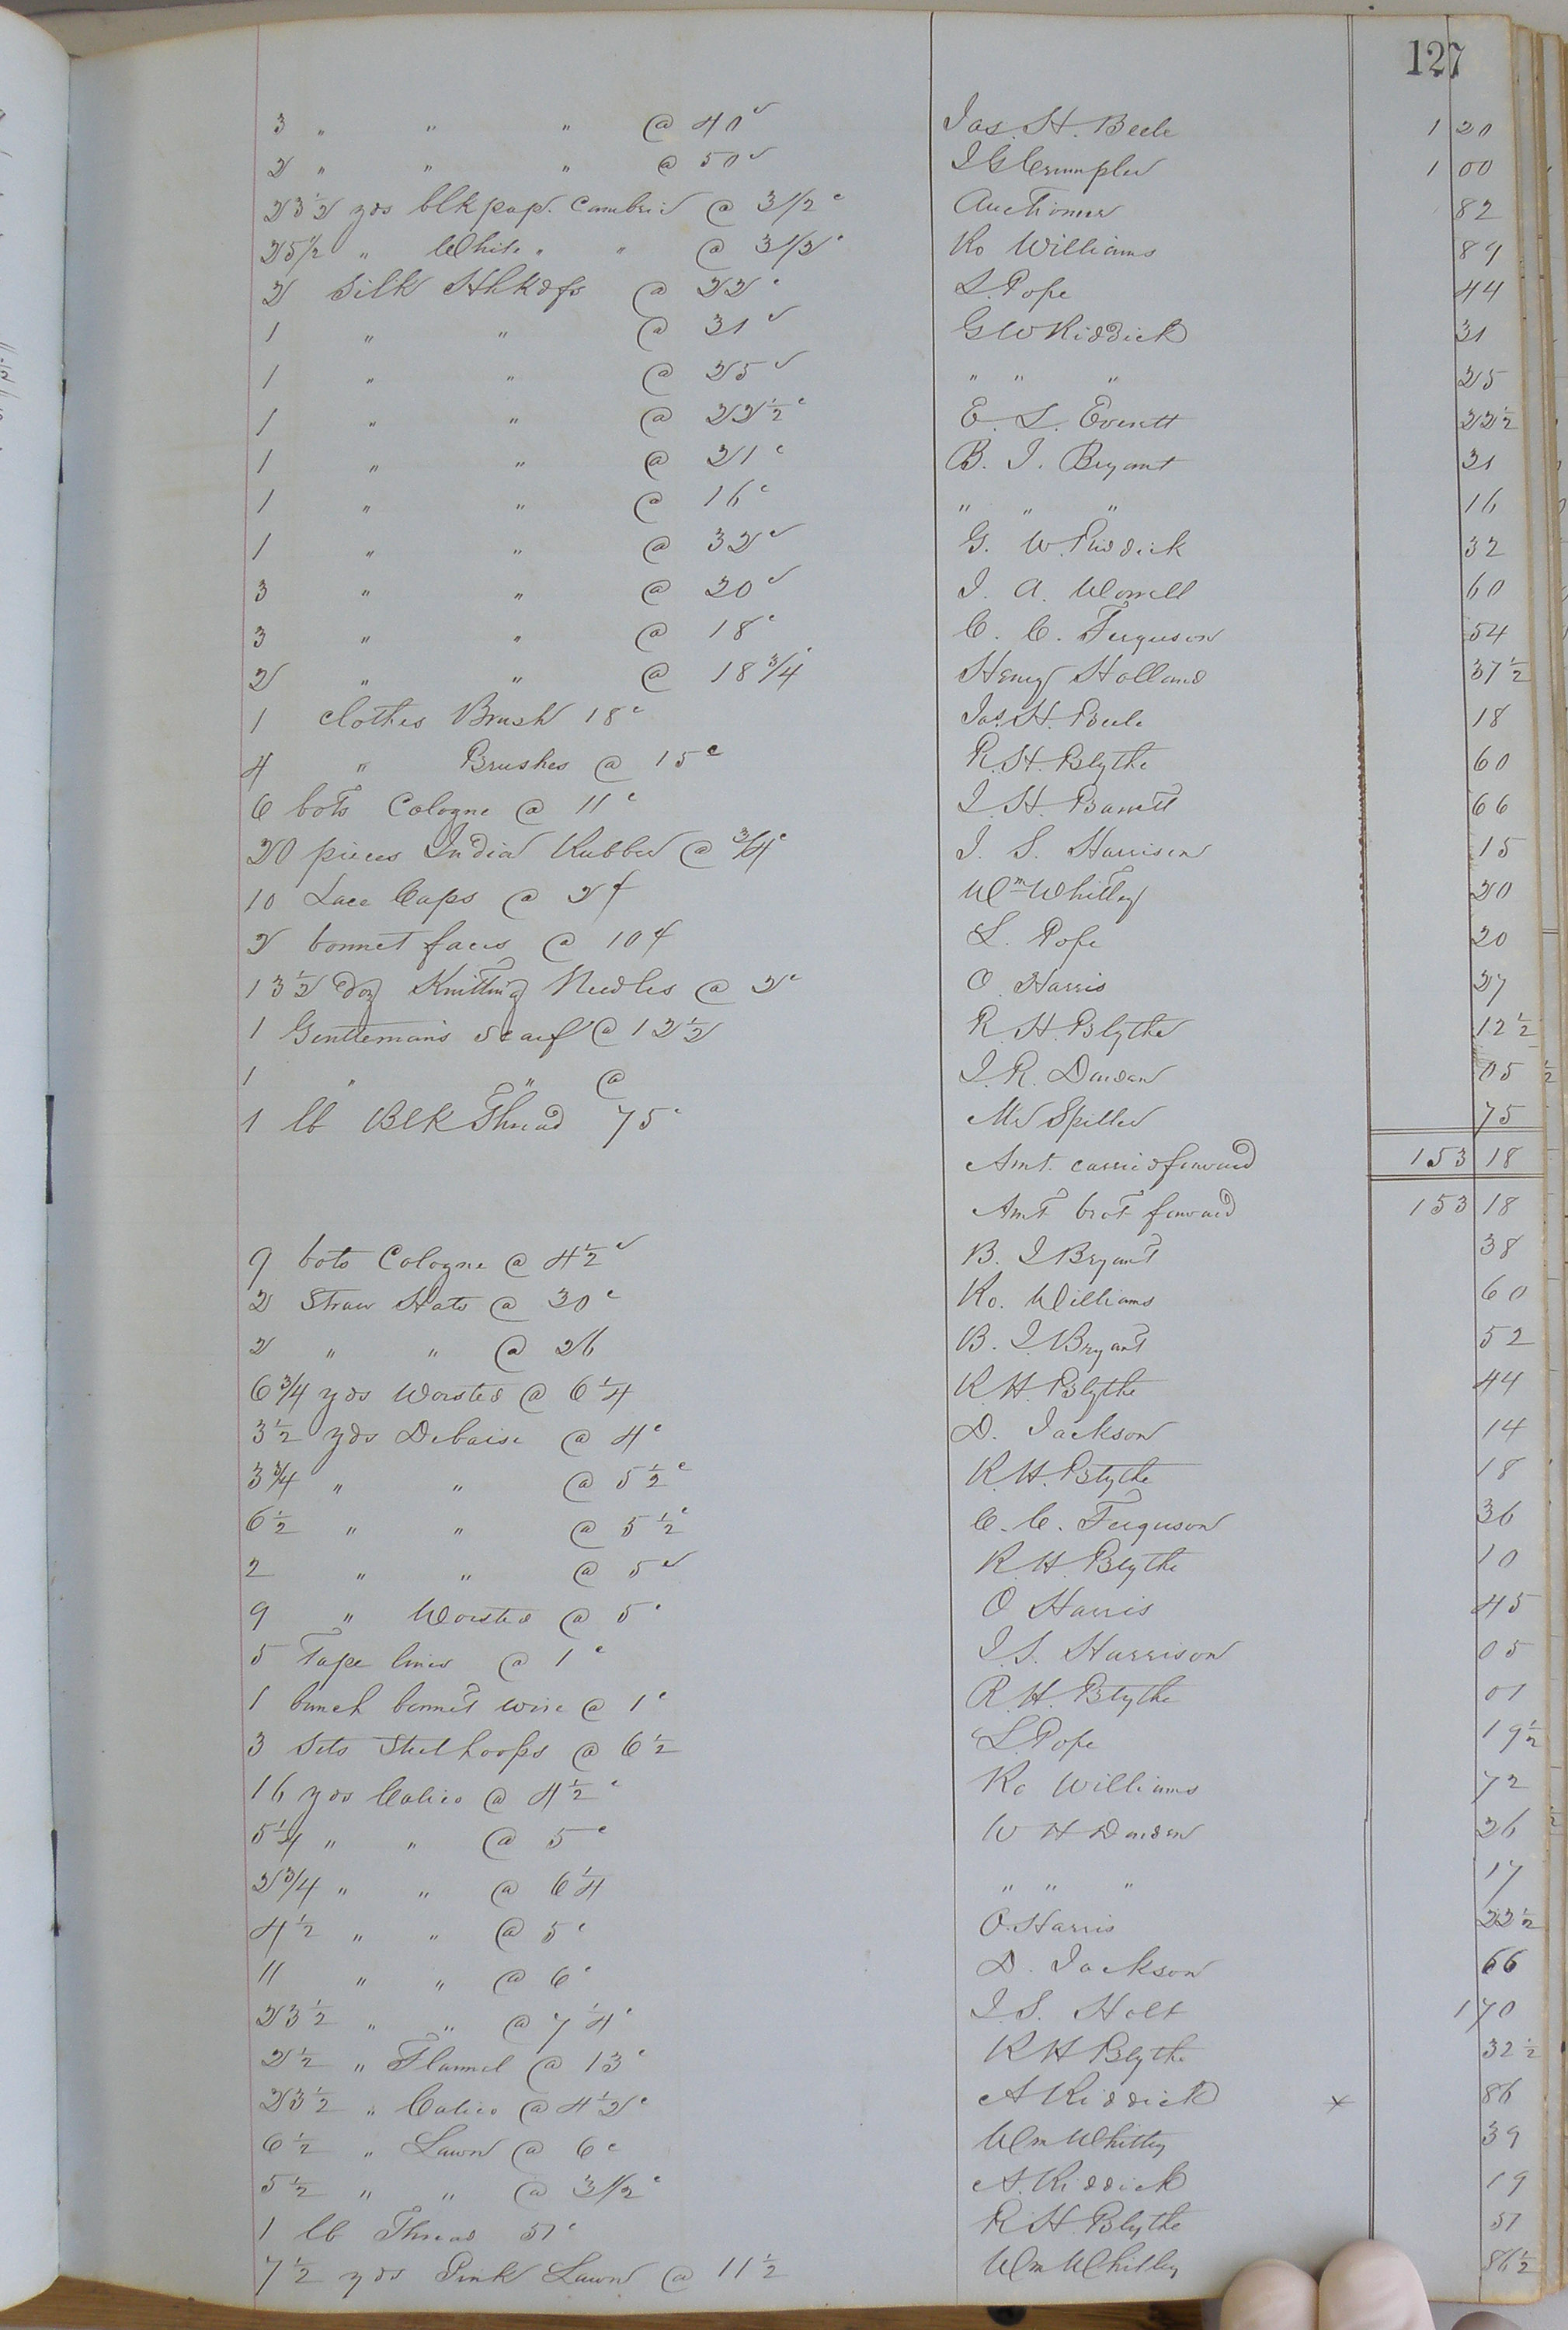 127
3 " " " @ 40c Jas. H. Beele 1 20
2 " " " @ 50c J G Crumpler 1 00
23 1/2 yds blk pap. Cambric @ 3 1/2c Auctioneer 82
25 1/2 " White " " @ 3 1/2c Ro Williams 89
2 Silk Hhkdfs @ 22c L. Pope 44
1 " " @ 31c G W Riddick 31
1 " " @ 25c " " " 25
1 " " @ 22 1/2c E. L. Everett 22 1/2
1 " " @ 21c B. J. Bryant 21
1 " " @ 16c " " " 16
1 " " @ 32c G. W. Riddick 32
3 " " @ 20c J. A. Worrell 60
3 " " @ 18c C. C. Ferguson 54
2 " " @ 18 3/4c Henry Holland 37 1/2
1 clothes Brush 18c Jas. H. Beele 18
4 " Brushes @ 15c R. H. Blythe 60
6 bots Cologne @ 11c J. H. Barrett 66
20 pieces India Rubber @ 3/4c J. S. Harrison 15
10 Lace Caps @ 2¢ Wm Whitley 20
2 bonnet faces @ 10¢ L. Pope 20
13 1/2 doz Knitting Needles @ 2c O. Harris 27
1 Gentleman's Scarf @ 12 1/2 R. H. Blythe 12 1/2
1 " " @ J. R. Darden 05
1 lb Blk Thread 75c Mr Spiller 75
Amt. carried forward 153 18
Amt brot forward 153 18
9 bots Cologne @ 4 1/2c B. J Bryant 38
2 Straw Hats @ 30c Ro. Williams 60
2 " " @ 26 B. J. Bryant 52
6 3/4 yds Worsted @ 6 1/4 R. H. Blythe 44
3 1/2 yds Debaise @ 4c D. Jackson 14
3 3/4 " " @ 5 1/2c R. H. Blythe 18
6 1/2 " " @ 5 1/2c C. C. Ferguson 36
2 " " @ 5c R. H. Blythe 10
9 " Worsted @ 5c O Harris 45
5 Tape lines @ 1c J. S. Harrison 05
1 bunch bonnet wire @ 1c R. H. Blythe 01
3 Sets Steel hoops @ 6 1/2 L. Pope 19 1/2
16 yds Calico @ 4 1/2c Ro Williams 72
5 1/4 " " @ 5c W H Darden 26
2 3/4 " " @ 6 1/4 " " " 17
4 1/2 " " @ 5c O. Harris 22 1/2
11 " " @ 6c D. Jackson 66
23 1/2 " " @ 7 1/4c J. S. Holt 1 70
2 1/2 " Flannel @ 13c R H Blythe 32 1/2
23 1/2 " Calico @ 4 1/2c A Riddick × 86
6 1/2 " Lawn @ 6c Wm Whitley 39
5 1/2 " " @ 3 1/2c A. Riddick 19
1 lb Thread 51c R. H. Blythe 51
7 1/2 yds Pink Lawn @ 11 1/2 Wm Whitley 86 1/2